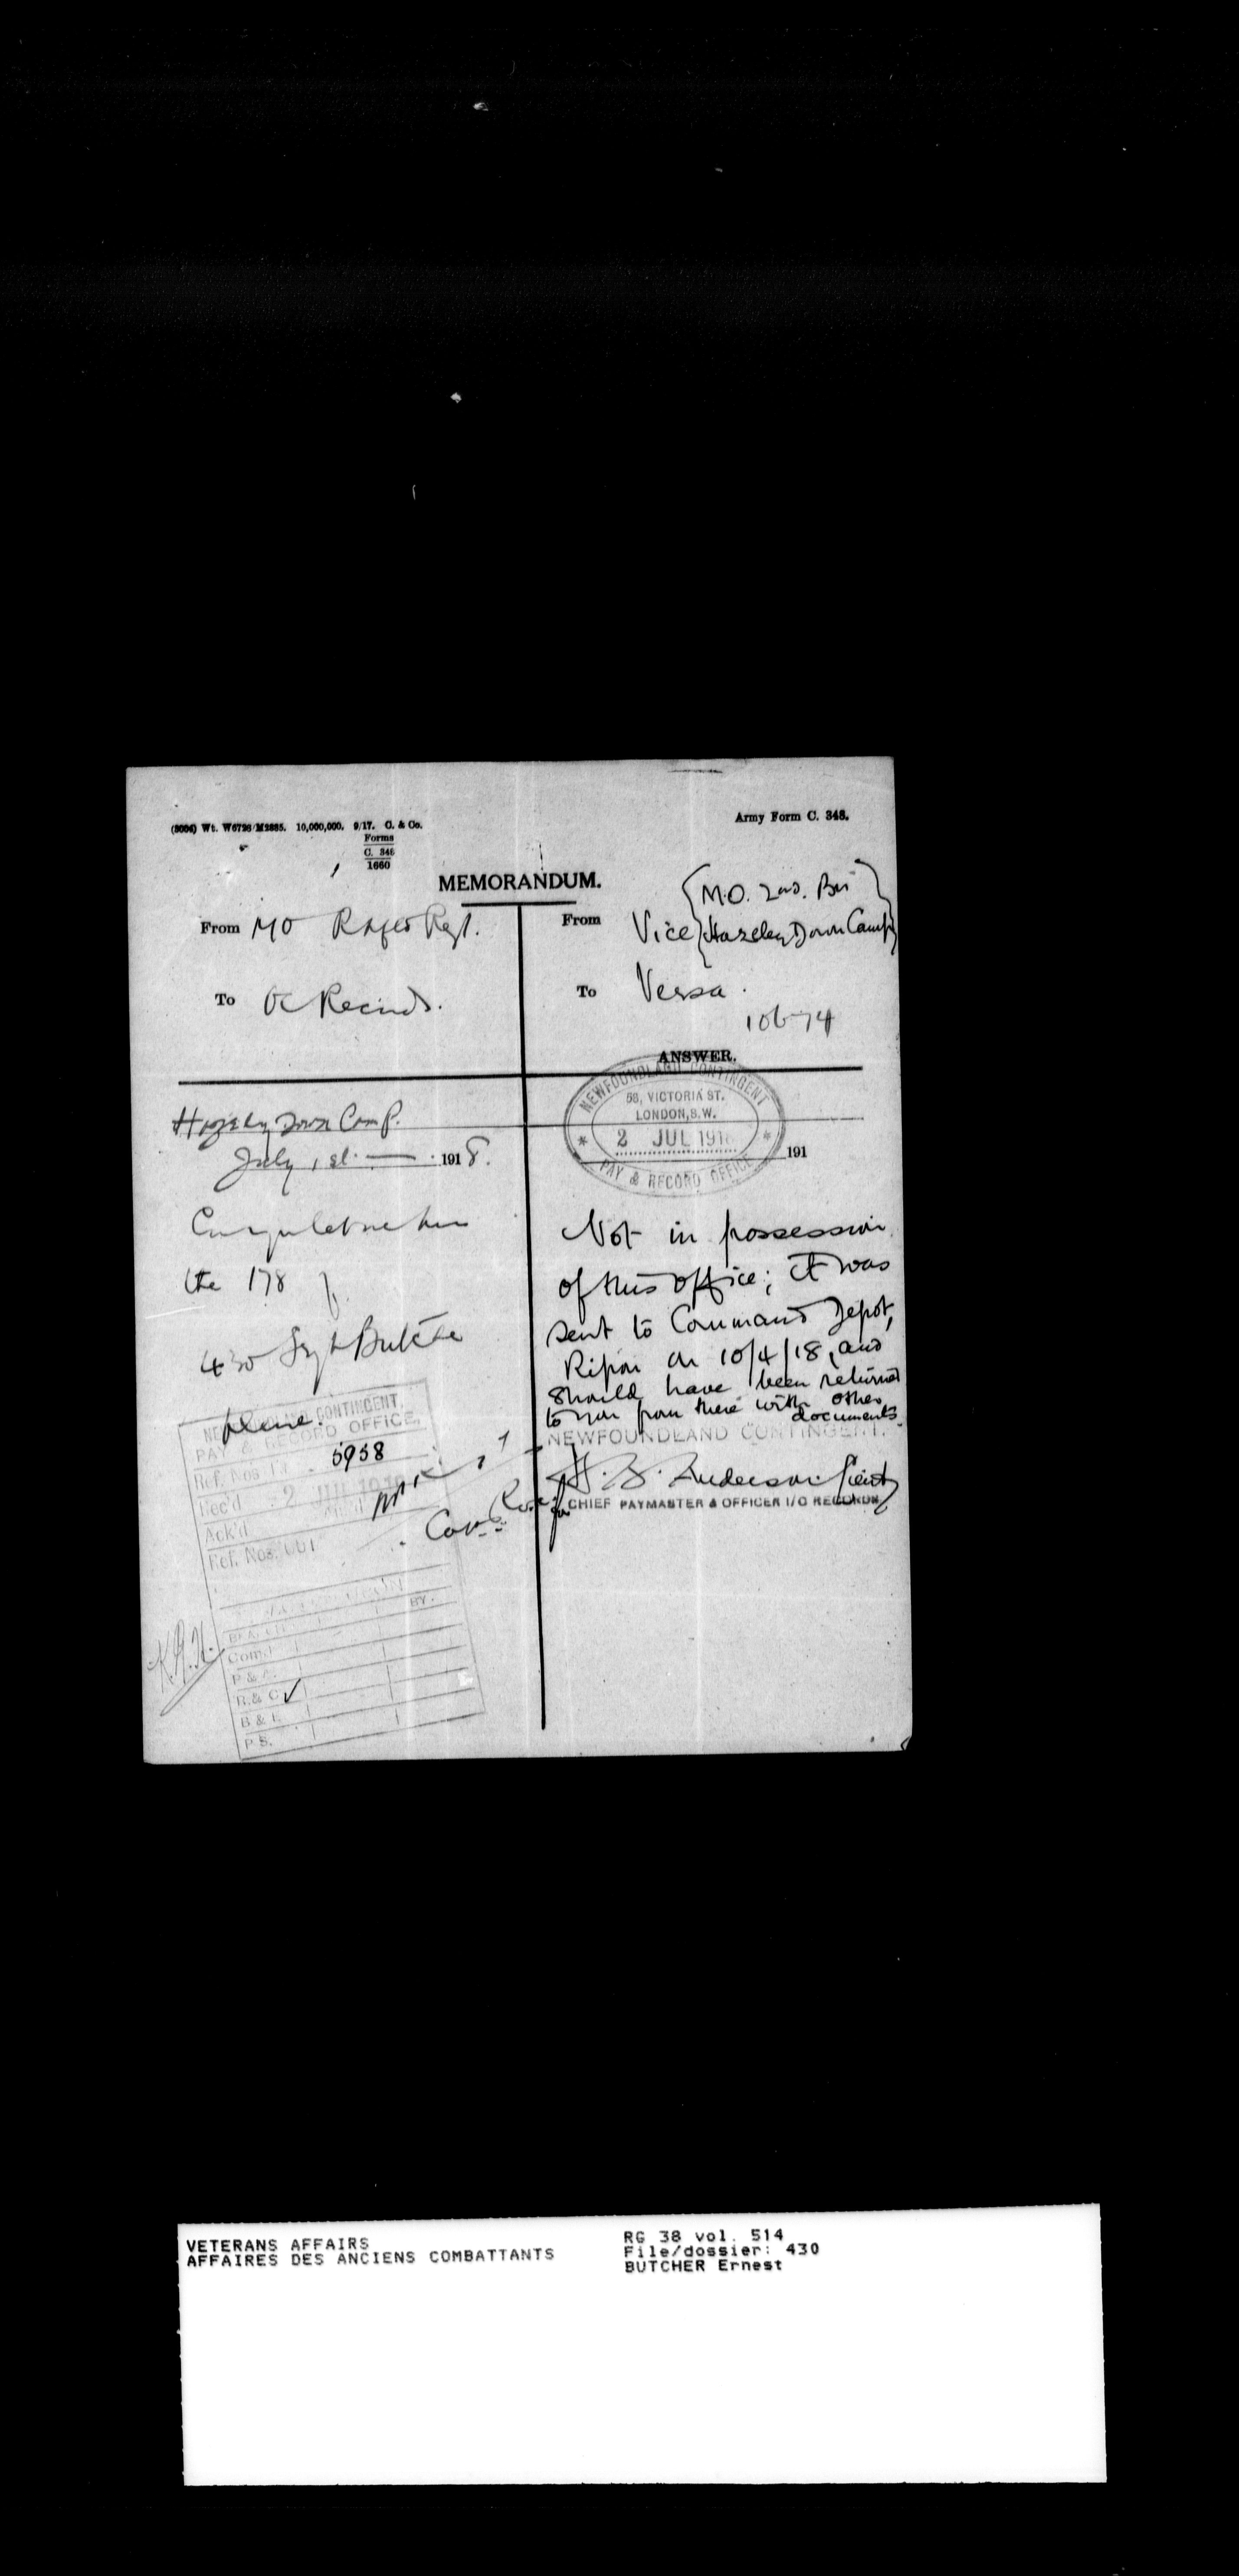 (3006) Wt. W6728/M2885. 10,000,000. 9/17. G. & Co.
Forms
C. 348
1660
Army Form C. 348.
MEMORANDUM.
From MO R Nfld Regt.
To OC Records.
From Vice { M.O. 2nd. Bn
Hazeley Down Camp }
To Versa.
10674
ANSWER.
Hazeley Down Camp.
July 1st. 1918.
the 178
430 Sgt Butcher
please.
NEWFOUNDLAND CONTINGENT.
PAY & RECORD OFFICE.
Ref. Nos. 5958
Rec'd 2 JUL 1918
Ack'd
Ref. Nos.
BY.
Com.
P & A.
R. & C. ✓
B & E
P S.
Capt.
NEWFOUNDLAND CONTINGENT
58, VICTORIA ST.
LONDON, S.W.
2 JUL 1918
PAY & RECORD OFFICE
191
Not in possession
of this office; it was
sent to Command Depot,
Ripon on 10/4/18, and
should have been returned
to you from there with other
documents.
NEWFOUNDLAND CONTINGENT.
Anderson Lieut
for CHIEF PAYMASTER & OFFICER I/C RECORDS
VETERANS AFFAIRS
AFFAIRES DES ANCIENS COMBATTANTS
RG 38 vol. 514
File/dossier: 430
BUTCHER Ernest